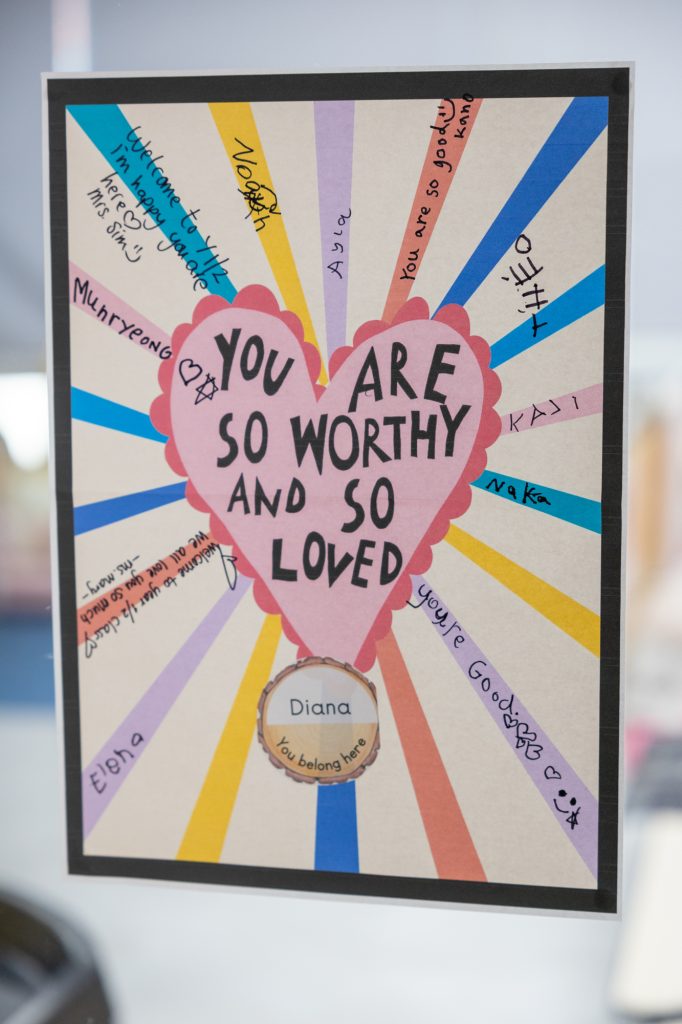 Welcome to Y1/2
i'm happy you are
here♡
Mrs. Sim:)
Noah
Ayla
You are so good:)
Kano
THEO
Munryeong
♡☆
KAJI
Naka
YOU ARE
SO WORTHY
AND SO
LOVED
Welcome to year 1/2 class♡
We all love you so much
-ms. mary-
you're Good:
Elena
Diana
You belong here